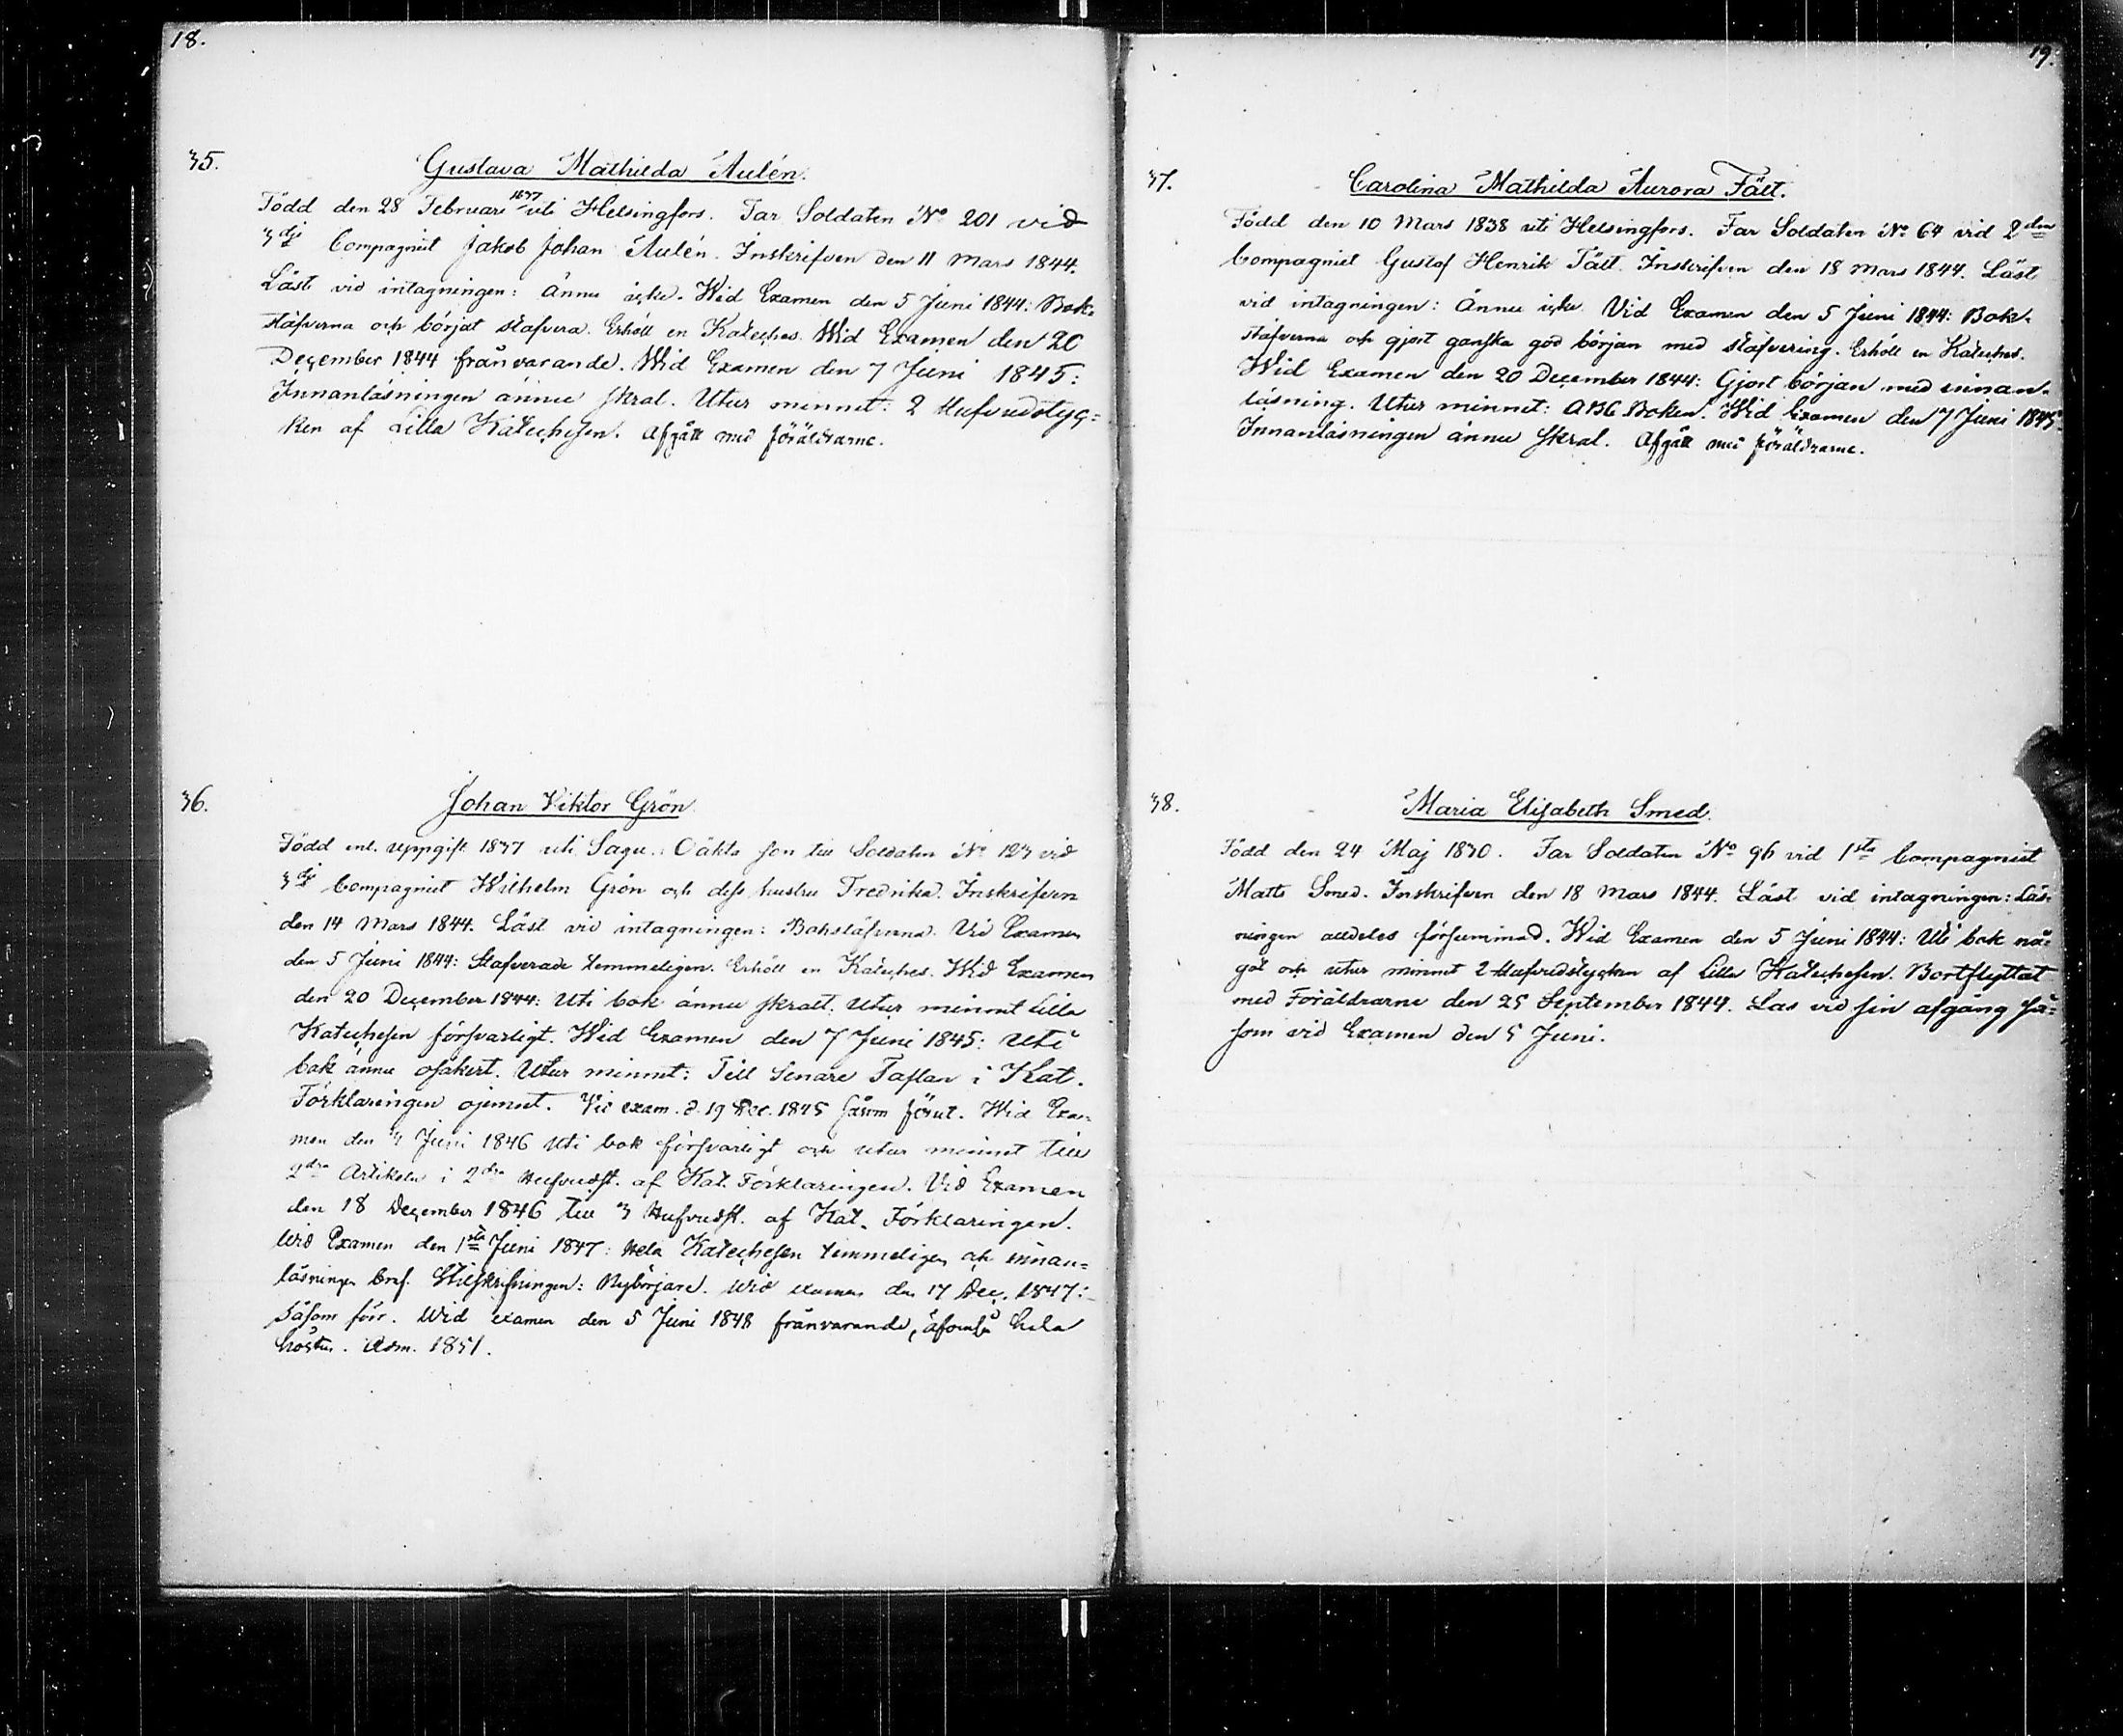 18.
35.
Gustava Mathilda Aulén.
Född den 28 Februari 1837 uti Helsingfors. Far Soldaten No 201 vid
3dje Compagniet Jakob Johan Aulén. Inskrifven den 11 Mars 1844.
Läst vid intagningen: Ännu icke. Wid Examen den 5 Juni 1844: Bok-
stäfverna och börjat stafvera. Erhöll en Kateches. Wid Examen den 20
December 1844 frånvarande. Wid Examen den 7 Juni 1845:
Innanläsningen ännu skral. Utur minnet: 2 Hufvudstyc-
ken af Lilla Katechesen. Afgått med föräldrarne.
36.
Johan Viktor Grön
Född enl. uppgift 1837 uti Sagu. Oäkta son till Soldaten No 123 vid
3dje Compagniet Wilhelm Grön och dess hustru Fredrika. Inskrifven
den 14 Mars 1844. Läst vid intagningen: Bokstäfverna. Vid Examen
den 5 Juni 1844: Stafverade temmeligen. Erhöll en Kateches. Wid Examen
den 20 December 1844: Uti bok ännu skralt. Utur minnet Lilla
Katechesen försvarligt. Wid Examen den 7 Juni 1845: Uti
bok ännu osäkert. Utur minnet: Till Senare Taflan i Kat.
Förklaringen ojemnt. Vid exam. d. 19 Dec. 1845 såsom förut. Wid Exa-
men den 3 Juni 1846 Uti bok försvarligt och utur minnet till
2dra Artikeln i 2dra Hufvudst. af Kat. Förklaringen. Vid Examen
den 18 December 1846 till 3 Hufvudst. af Kat. Förklaringen.
Wid Examen den 1sta Juni 1847: Hela Katechesen temmeligen och innan-
läsningen bra. Stilskrifningen: Nybörjare. Wid examen den 17 Dec. 1847:
Såsom förr. Wid examen den 5 Juni 1848 frånvarande, äfvenså hela
hösten. Adm. 1851.
19.
37.
Carolina Mathilda Aurora Fält.
Född den 10 Mars 1838 uti Helsingfors. Far Soldaten No 64 vid 2dra
Compagniet Gustaf Henrik Fält. Inskrifven den 18 Mars 1844. Läst
vid intagningen: Ännu icke. Vid Examen den 5 Juni 1844: Bok-
stäfverna och gjort ganska god början med stafvering. Erhöll en Kateches.
Wid Examen den 20 December 1844: Gjort början med innan-
läsning. Utur minnet: ABC Boken. Wid Examen den 7 Juni 1845:
Innanläsningen ännu skral. Afgått med föräldrarne.
38.
Maria Elisabeth Smed.
Född den 24 Maj 1830. Far Soldaten No 96 vid 1sta Compagniet
Matts Smed. Inskrifven den 18 Mars 1844. Läst vid intagningen: Läs-
ningen alldeles försummad. Wid Examen den 5 Juni 1844: Uti bok nå-
got och utur minnet 2 Hufvudstycken af Lilla Katechesen. Bortflyttat
med Föräldrarne den 25 September 1844. Las vid sin afgång så-
som vid Examen den 5 Juni.